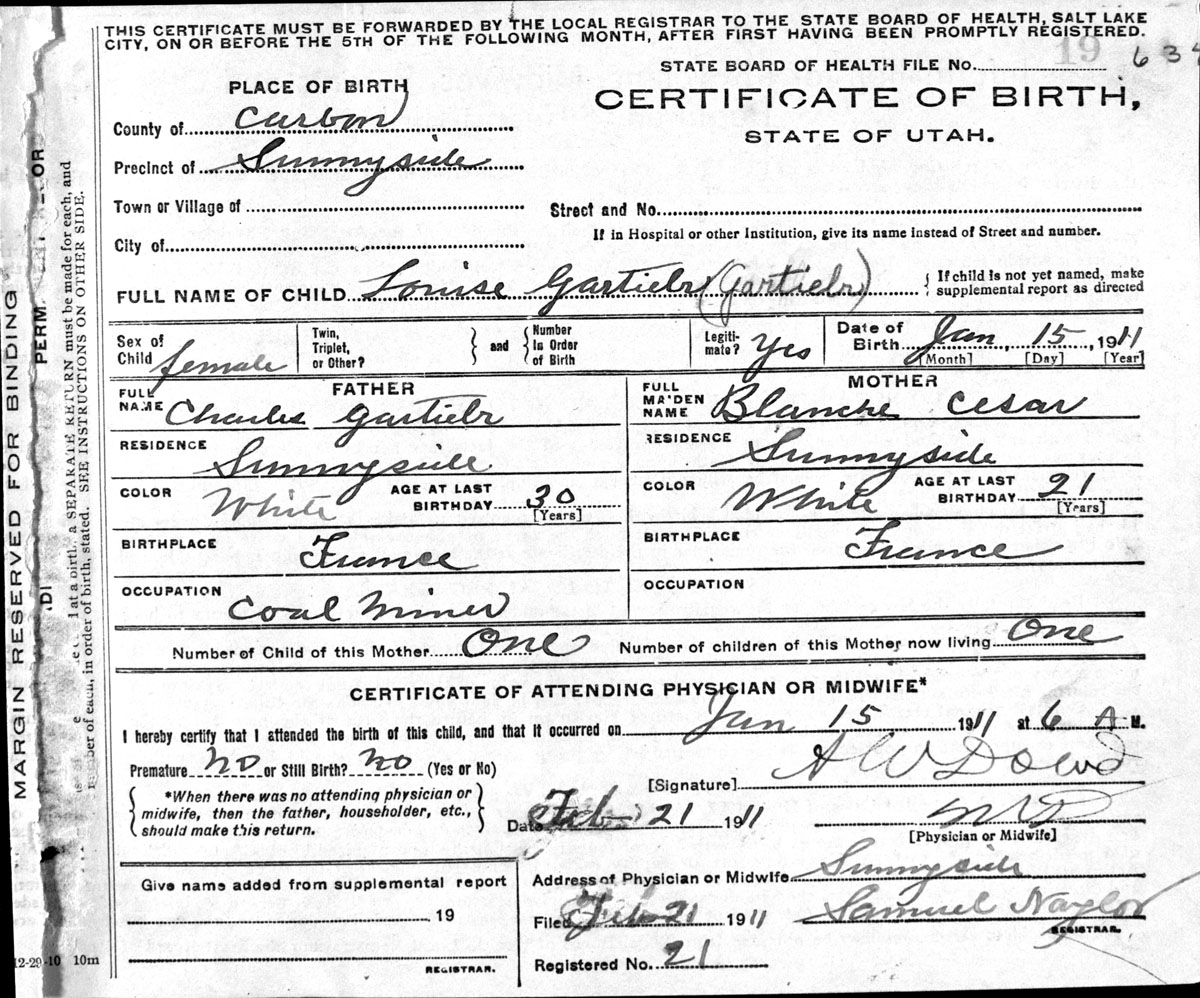 THIS CERTIFICATE MUST BE FORWARDED BY THE LOCAL REGISTRAR TO THE STATE BOARD OF HEALTH, SALT LAKE
CITY, ON OR BEFORE THE 5TH OF THE FOLLOWING MONTH, AFTER FIRST HAVING BEEN PROMPTLY REGISTERED.
19
STATE BOARD OF HEALTH FILE No. 634
PLACE OF BIRTH
CERTIFICATE OF BIRTH,
STATE OF UTAH.
County of Carbon
Precinct of Sunnyside
Town or Village of
Street and No.
City of
If in Hospital or other Institution, give its name instead of Street and number.
FULL NAME OF CHILD Louise Gartielr (Gartielr)
{ If child is not yet named, make
supplemental report as directed
Sex of Child female
Twin, Triplet, or Other?
} and { Number In Order of Birth
Legiti-mate? Yes
Date of Birth Jan, 15, 1911
[Month] [Day] [Year]
FATHER
FULL NAME Charles Gartielr
MOTHER
FULL MAIDEN NAME Blanche Cesar
RESIDENCE Sunnyside
RESIDENCE Sunnyside
COLOR White AGE AT LAST BIRTHDAY 30 [Years]
COLOR White AGE AT LAST BIRTHDAY 21 [Years]
BIRTHPLACE France
BIRTHPLACE France
OCCUPATION Coal Miner
OCCUPATION
Number of Child of this Mother One Number of children of this Mother now living One
CERTIFICATE OF ATTENDING PHYSICIAN OR MIDWIFE*
I hereby certify that I attended the birth of this child, and that it occurred on Jan 15 1911 at 6 A M.
Premature No or Still Birth? No (Yes or No)
[Signature] A W Dowd
{ *When there was no attending physician or
midwife, then the father, householder, etc.,
should make this return. }
Date Feb 21 1911
MD
[Physician or Midwife]
Give name added from supplemental report
19
REGISTRAR.
Address of Physician or Midwife Sunnyside
Filed Feb 21 1911 Samuel Naylor
REGISTRAR.
Registered No. 21
12-29-10 10m
MARGIN RESERVED FOR BINDING
a SEPARATE RETURN must be made for each, and
number of each, in order of birth, stated. SEE INSTRUCTIONS ON OTHER SIDE.